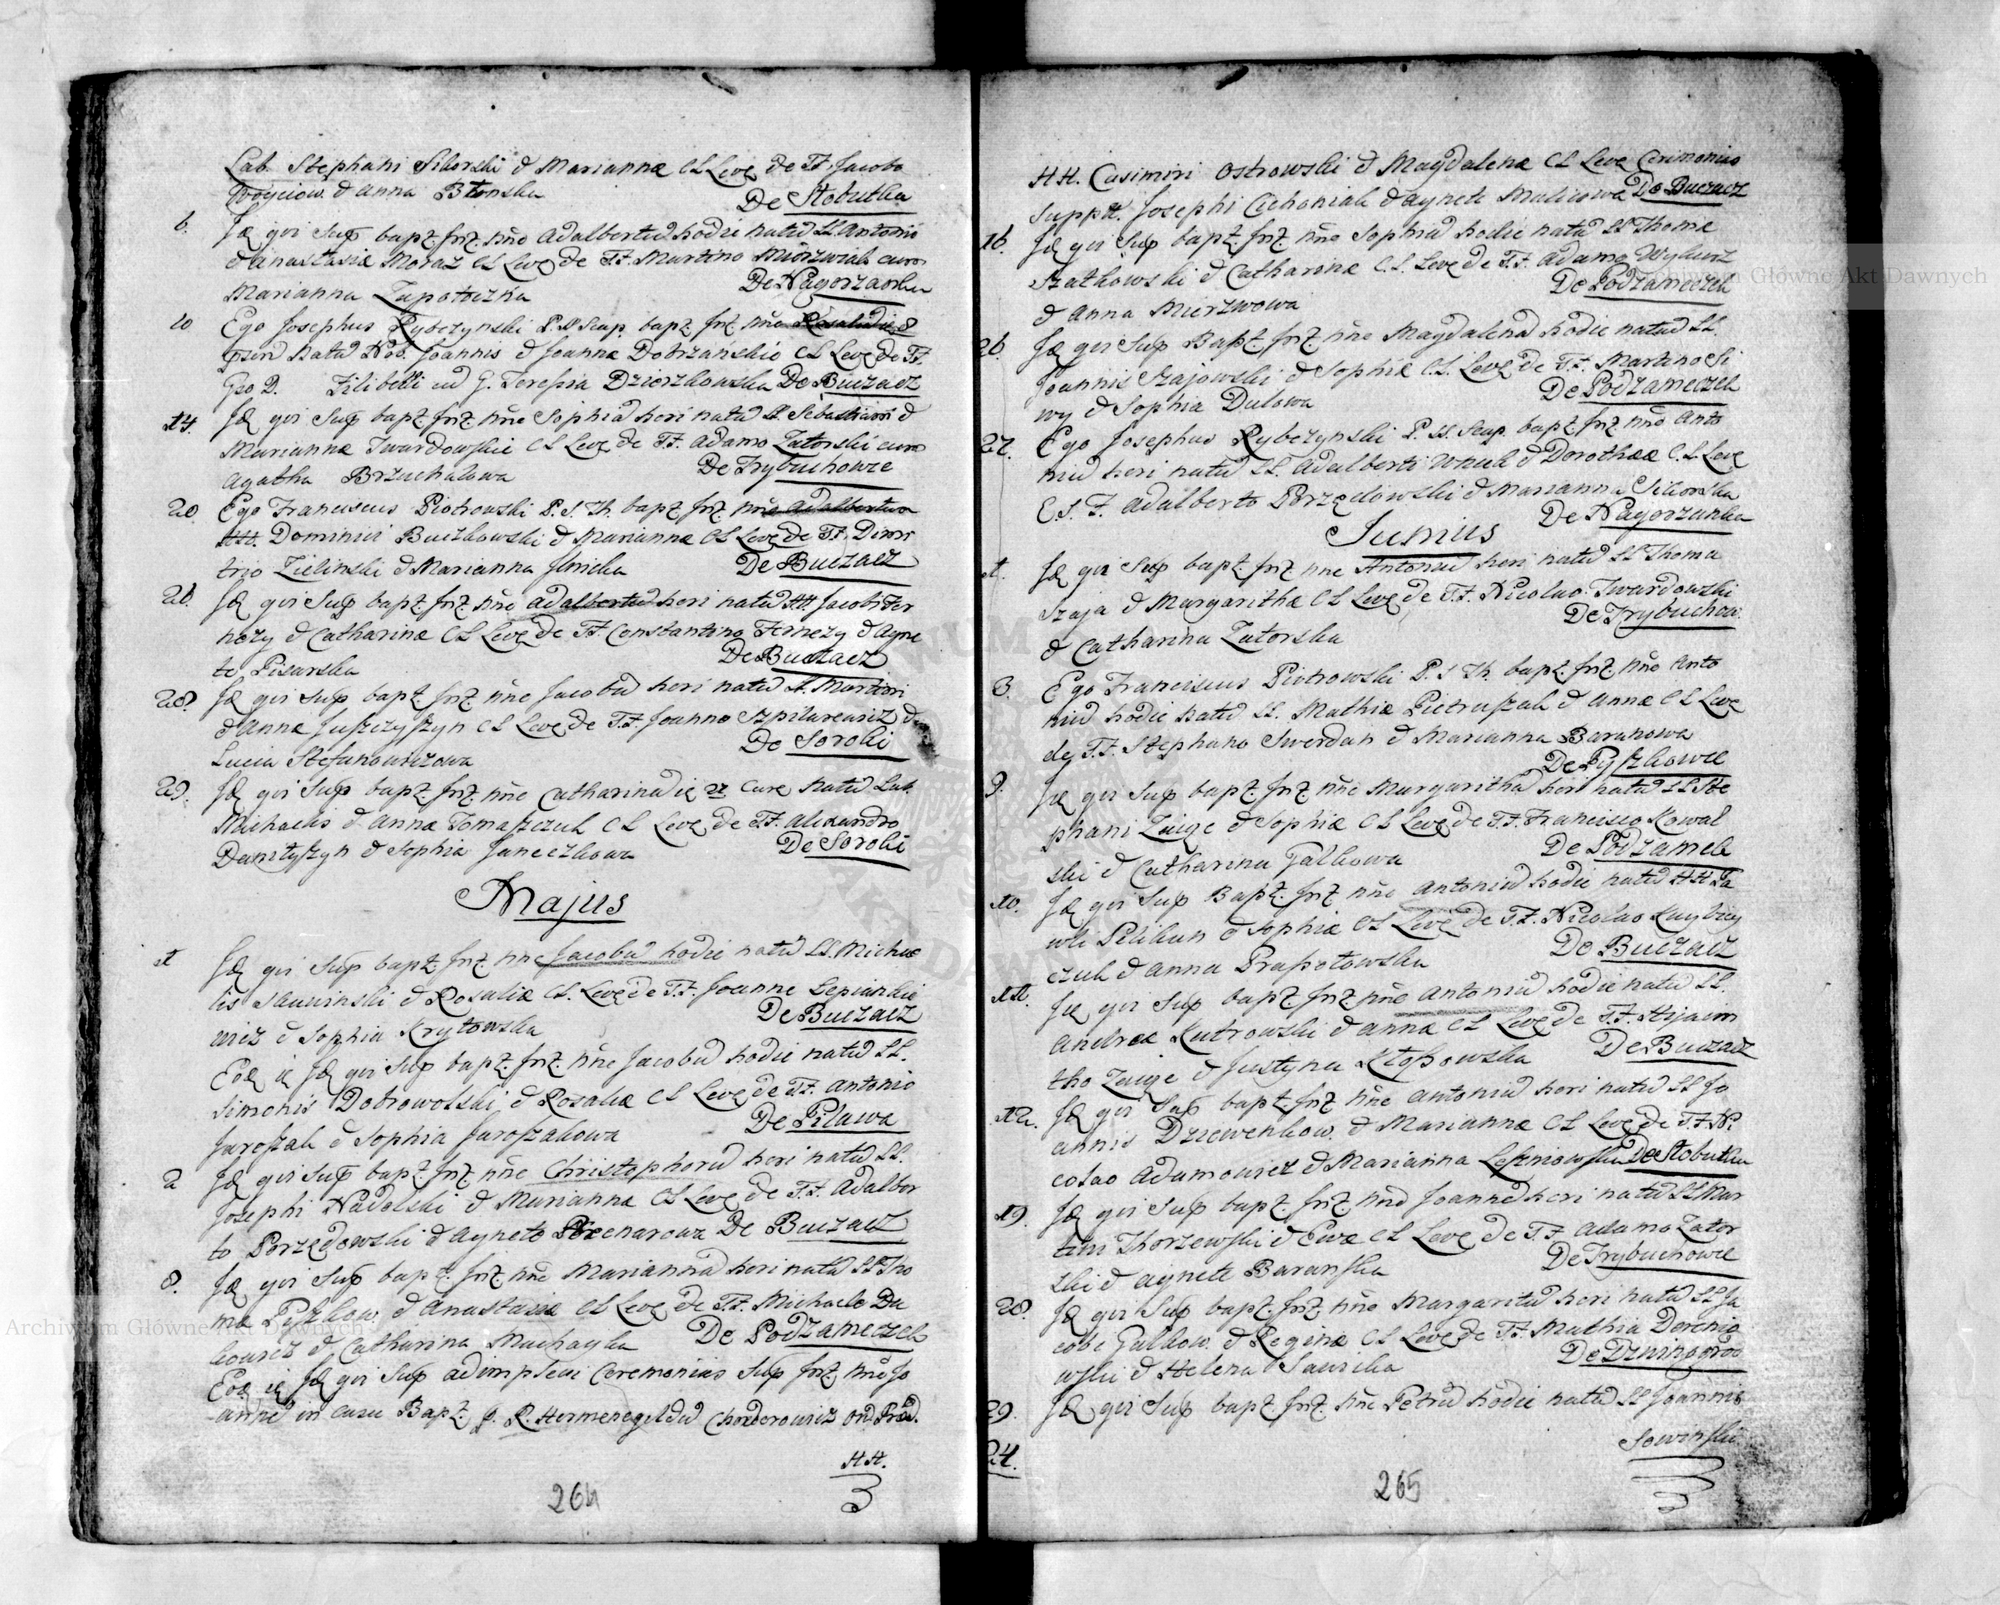 Lab. Stephani Sikorski & Mariannæ CL Leve de FF. Jacobo
Woyciow. & Anna Blonska De Slobutka
6. Jde qvi Sup bapt. frt. nne Adalbertu hodie natu LL Antonii
& Anastasiæ Moraz CL Leve de FF. Martino Mierzwiak cum
Marianna Zapotoczka De Nagorzanka
10 Ego Josephus Rybczynski P. SS Scap. bapt. frt. nne Rosalia die 8
psen natu Nob. Joannis & Joannæ Dobrzańskie CL Leve de FF
Gso D. Filibelli cu G. Teressia Dzierzkowska De Buczacz
14. Jde qvi Sup bapt. frt. nne Sophia heri natu LL Sebastiani &
Mariannæ Twardowskie CL Leve de FF. Adamo Zatorski cum
Agatha Brzuchalowa De Trybuchowce
20 Ego Franciscus Piotrowski P. S Th. bapt. frt. nne Adalbertum
HH. Dominici Buczkowski & Mariannæ CL Leve de FF. Dimi
trio Zielinski & Marianna Ilnicka De Buczacz
26. Jde qvi Sup bapt. frt. nne Adalbertu heri natu HH. Jacobi Fer
nezy & Catharinæ CL Leve de FF Constantino Fernezy & Agne
te Pisarska De Buczacz
28 Jde qvi Sup bapt. frt. nne Jacobu heri natu L. Martini
& Annæ Juszczyszyn CL Leve de FF Joanne Szpilarewicz &
Lucia Stefanowiczowa De Soroki
29. Jde qvi Sup bapt. frt. nne Catharina die 22 Cure natu Lab.
Michaelis & Annæ Tomaszczuk CL Leve de FF. Alexandro
Danilyszyn & Sophia Janeczkowa De Soroki
Majus
1 Jde qvi Sup bapt frt nne Jacobu hodie natu LL. Michae
lis Slawinski & Rosaliæ CL. Leve de FF. Joanne Lepiankie
wicz & Sophia Krytowska De Buczacz
Eode ie Jde qvi Sup bapt. frt. nne Jacobu hodie natu LL.
Simonis Dobrowolski & Rosaliæ CL Leve de FF. Antonio
Jaroszak & Sophia Jaroszakowa De Pilawa
2 Jde qvi Sup bapt frt nne Christophoru heri natu LL.
Josephi Nadolski & Mariannæ CL Leve de FF. Adalber
to Porzędowski & Agnete De Buczacz
8. Jde qvi Sup bapt. frt. nne Marianna heri natu LL Tho
mæ Pyszkow. & Anastasiæ CL Leve de FF. Michaele Du
kowicz & Catharina Machayka De Podzameczek
Eode ie Jde qvi Sup adimplevi Ceremonias Sup frt. nne Jo
anne in casu Bapt p. R. Hermenegildu Choderowicz Ord Præd.
HH.
264
HH. Casimiri Ostrowski & Magdalenæ CL Leve Cerimonias
Supplt. Josephi Cichoniak & Agnete Malicowa De Buczacz
16. Jde qvi Sup bapt. frt. nne Sophia hodie natu LL Thomæ
Szatkowski & Catharinæ C.L. Leve de FF. Adamo
& Anna Mierzwowa De Podzameczek
26. Jde qvi Sup Bapt. frt. nne Magdalena hodie natu LL.
Joannis Szajowski & Sophiæ C.L. Leve de FF. Martino Si
wy & Sophia Dulowa De Podzameczek
27. Ego Josephus Rybczynski P. SS. Scap. bapt frt nne Anto
niu heri natu LL. Adalberti Wnuk & Dorotheæ C.L. Leve
C.S. F. Adalberto Porzędowski & Marianna Sikorska
De Nagorzanka
Junius
1. Jde qvi Sup bapt. frt. nne Antoniu heri natu LL Thoma
Szaja & Margarithæ CL Leve de FF. Nicolao Twardowski
& Catharina Zatorska De Trybuchow.
3. Ego Franciscus Piotrowski P. S Th. bapt. frt. nne Anto
niu hodie natu LL. Mathiæ Pietruszak & Annæ CL Leve
de FF. Stephano Swerdan & Marianna Baranowa
De Pyszkowce
9. Jde qvi Sup bapt. frt. nne Margaritha heri natu LL Ste
phani Zaige & Sophiæ CL Leve de FF. Francisco Kowal
ski & Catharina Galkowa De Podzamek
10. Jde qvi Sup Bapt. frt nne Antoniu hodie natu HH Pa
wli Pelikan & Sophiæ CL Leve de FF. Nicolao
czuk & Anna Praspotowska De Buczacz
11. Jde qvi Sup bapt. frt. nne Antoniu hodie natu LL.
Andreæ Kutrowski & Annæ CL Leve de FF. Hijacin
tho Zaige & Justyna Klossowska De Buczacz
12. Jde qvi Sup bapt. frt nne Antoniu heri natu LL Jo
annis Dziewenkow. & Mariannæ CL Leve de FF. Ni
colao Adamowicz & Marianna Leszniowska De Slobutka
19. Jde qvi Sup bapt. frt. nne Joanne heri natu LL Mar
tini Thorzewski & Evæ CL Leve de FF Adamo Zator
ski & Agnete Baranska De Trybuchowce
28. Jde qvi Sup bapt. frt. nne Margarita heri natu LL Ja
cobi Galkow. & Reginæ CL Leve de FF. Mathia Derenio
wski & Helena Sawicka De Dzwinogrod
29. Jde qvi Sup bapt frt. nne Petru hodie natu LL Joannis
24. Sowinski
265
Archiwum Główne Akt Dawnych
Archiwum Główne Akt Dawnych